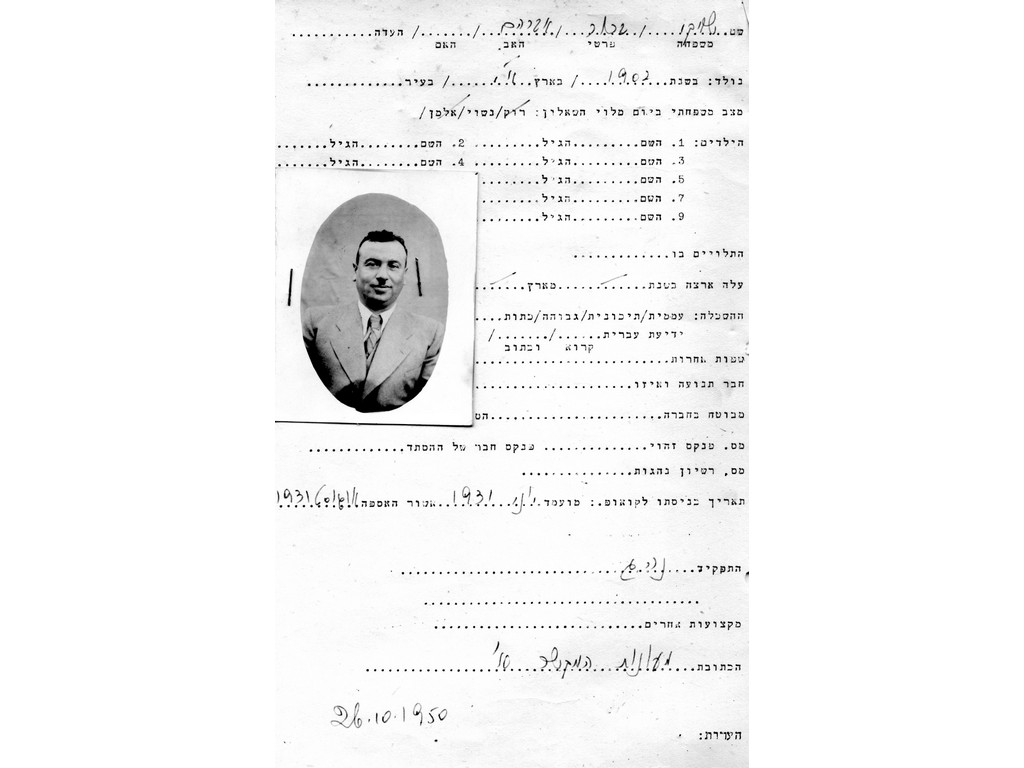 שם..../............/ אברהם /......../ העדה............
משפחה פרטי האב האם
נולד: בשנת....1902..../ בארץ.א"י../ בעיר.............
מצב משפחתי ביום מלוי השאלון: רוק/נשוי/אלמן/
הילדים: 1. השם.........הגיל......... 2. השם........הגיל.......
3. השם.........הגיל......... 4. השם........הגיל.......
5. השם.........הגיל.........
7. השם.........הגיל.........
9. השם.........הגיל.........
התלויים בו.............
עלה ארצה בשנת............מארץ......
ההשכלה: עממית/תיכונית/גבוהה/כתות....
ידיעת עברית....../......./
קרוא וכתוב
שפות אחרות.........................
חבר תנועה ואיזו....................
מבוטח בחברה.......................הס
מס. פנקס זהוי.............. פנקס חבר של ההסתד.............
מס. רשיון נהגות..............
תאריך כניסתו לקואופ.: מועמד.יוני 1931...אשור האספה.אוגוסט 1931
התפקיד....נהג..............................
.....................................
מקצועות אחרים...........................
הכתובת....מעונות המקשר ..............................
26.10.1950
הערות: